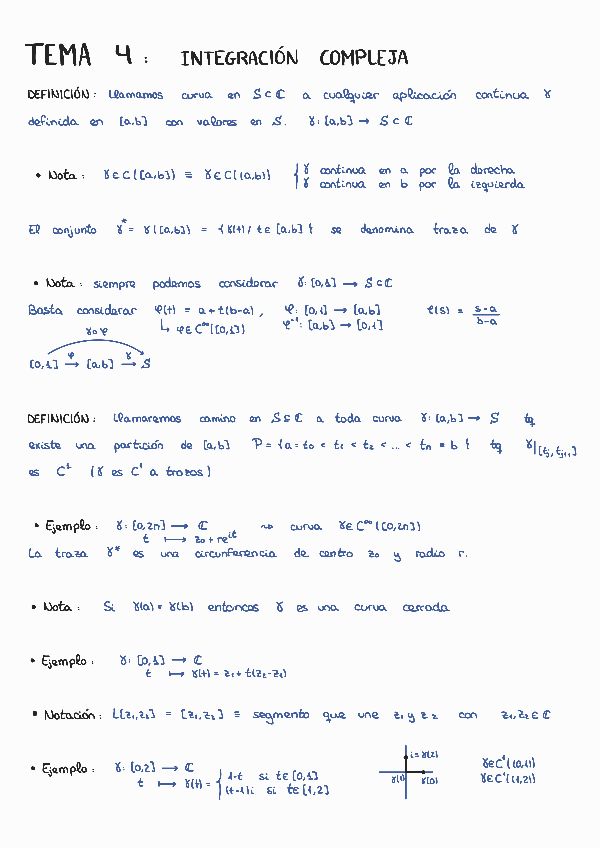 TEMA 4 : INTEGRACIÓN COMPLEJA
DEFINICIÓN: Llamamos curva en S⊂ℂ a cualquier aplicación continua γ
definida en [a,b] con valores en S. γ:[a,b] → S⊂ℂ
• Nota: γ∈C([a,b]) ≡ γ∈C((a,b)) { γ continua en a por la derecha
γ continua en b por la izquierda
El conjunto γ* = γ([a,b]) = {γ(t)/ t∈[a,b]} se denomina traza de γ
• Nota: siempre podemos considerar γ:[0,1] → S⊂ℂ
Basta considerar φ(t) = a+t(b-a), φ:[0,1] → [a,b] t(s) = (s-a)/(b-a)
γ∘φ ↳ φ∈C^∞([0,1]) φ⁻¹:[a,b] → [0,1]
[0,1] →φ [a,b] →γ S
DEFINICIÓN: Llamaremos camino en S⊆ℂ a toda curva γ:[a,b] → S tq
existe una partición de [a,b] P = {a=t₀ < t₁ < t₂ < ... < tₙ = b} tq γ|[tⱼ,tⱼ₊₁]
es C¹ (γ es C¹ a trozos)
• Ejemplo: γ:[0,2π] → ℂ ⇝ curva γ∈C^∞([0,2π])
t ↦ z₀+re^{it}
La traza γ* es una circunferencia de centro z₀ y radio r.
• Nota: Si γ(a) = γ(b) entonces γ es una curva cerrada
• Ejemplo: γ:[0,1] → ℂ
t ↦ γ(t) = z₁+t(z₂-z₁)
• Notación: L[z₁,z₂] = [z₁,z₂] ≡ segmento que une z₁ y z₂ con z₁,z₂∈ℂ
• Ejemplo: γ:[0,2] → ℂ
t ↦ γ(t) = { 1-t si t∈[0,1]
(t-1)i si t∈[1,2]
i=γ(2)
γ(1) γ(0)
γ∈C¹((0,1))
γ∈C¹((1,2))